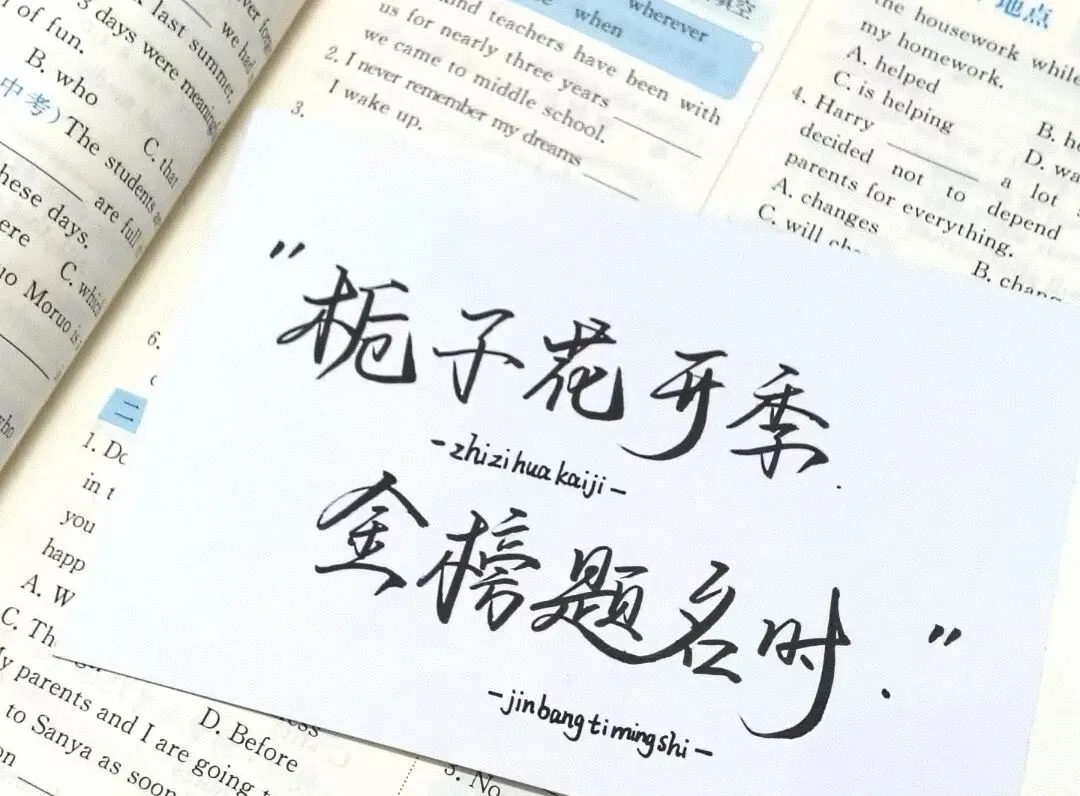 3 days were meaning
last summer,
we had
of fun.
B. who
C. that
中考) The students a
are full
these days.
C. which
uo Moruo is
wherever
when
kind teachers have been with
us for nearly three years
we came to middle school.
2. I never remember my dreams
I wake up.
3.
地点
the housework while
my homework.
A. helped
C. is helping
4. Harry
a lot
decided not to depend
parents for everything.
A. changes
C. will cha
B. chang
D. wa
"栀子花开季.
-zhizihuakaiji-
金榜题名时."
-jinbangtimingshi-
6.
二
1. Do
in t
you
happ
A. W
C. Th
D. Before
My parents and I are going t
to Sanya as soon
on
3. No